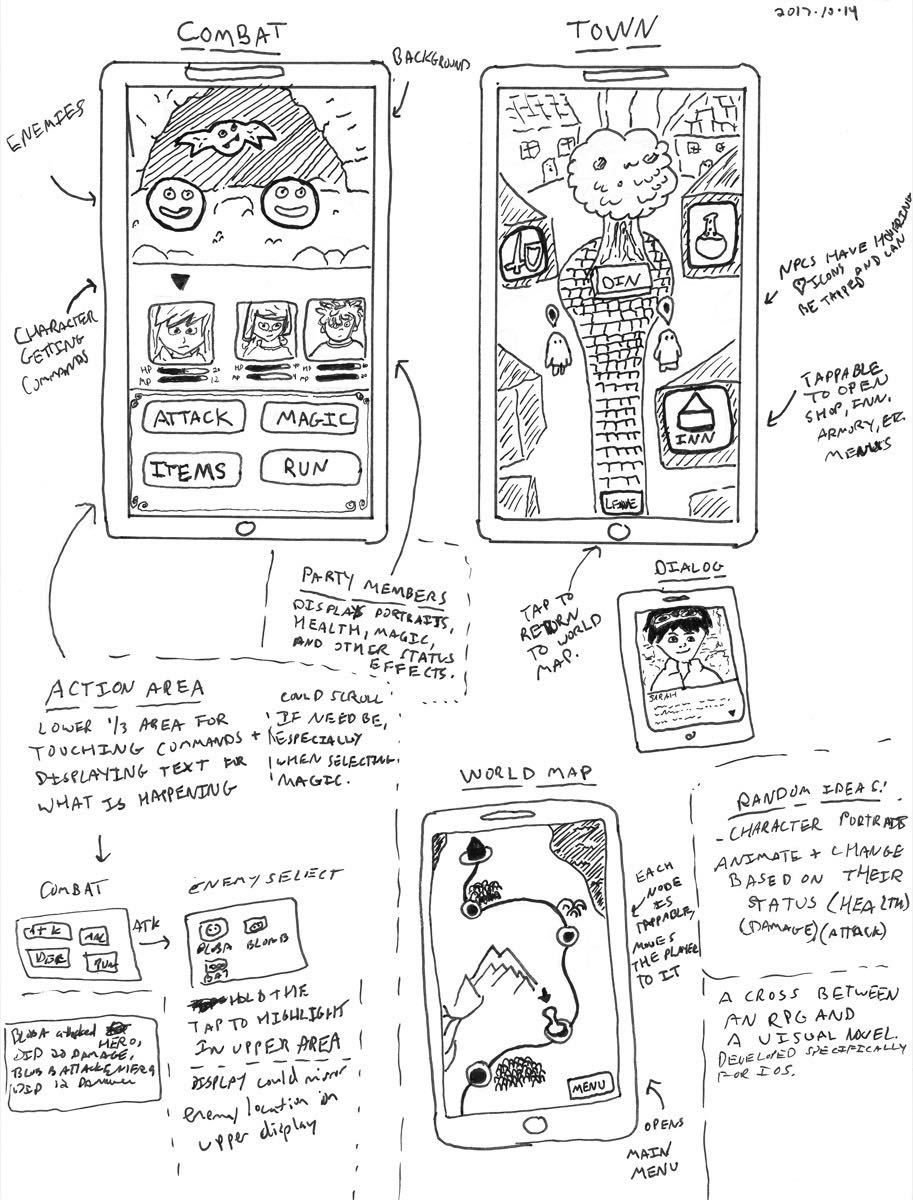 2017.10.14
COMBAT
TOWN
BACKGROUND
ENEMIES
CHARACTER
GETTING
COMMANDS
HP 20
MP 12
HP
MP
HP
MP
ATTACK
MAGIC
ITEMS
RUN
DIN
INN
LEAVE
NPCS HAVE HOVERING
ICONS AND CAN
BE TAPPED
TAPPABLE
TO OPEN
SHOP, INN,
ARMORY, ETC.
MENUS
PARTY MEMBERS
DISPLAYS PORTRAITS,
HEALTH, MAGIC,
AND OTHER STATUS
EFFECTS.
TAP TO
RETURN
TO WORLD
MAP.
DIALOG
SARAH
ACTION AREA
LOWER 1/3 AREA FOR
TOUCHING COMMANDS +
DISPLAYING TEXT FOR
WHAT IS HAPPENING
COULD SCROLL
IF NEED BE,
ESPECIALLY
WHEN SELECTING
MAGIC.
WORLD MAP
EACH
NODE
IS
TAPPABLE,
MOVES
THE PLAYER
TO IT
MENU
OPENS
MAIN
MENU
RANDOM IDEAS:
- CHARACTER PORTRAITS
ANIMATE + CHANGE
BASED ON THEIR
STATUS (HEALTH)
(DAMAGE) (ATTACK)
A CROSS BETWEEN
AN RPG AND
A VISUAL NOVEL.
DEVELOPED SPECIFICALLY
FOR IOS.
COMBAT
ATK
RUN
ATK
BLOB A attacked HERO,
DID 20 DAMAGE,
BLOB B ATTACKED HERO
DID 12 DAMAGE
ENEMY SELECT
BLOB A
BLOB B
BAT
HOLD THE
TAP TO HIGHLIGHT
IN UPPER AREA
DISPLAY could mirror
enemy location in
upper display